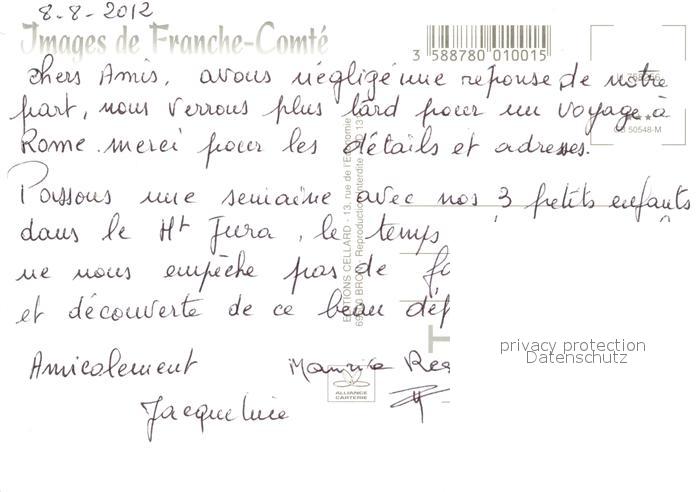 8-8-2012
Images de Franche-Comté
3 588780 010015
chers Amis, avons négligé une réponse de notre
part, nous verrons plus tard pour un voyage à
Rome. merci pour les détails et adresses.
CB 50548-M
Passons une semaine avec nos 3 petits enfants
dans le Ht Jura, le temps
ne nous empêche pas de
et découverte de ce beau dép
Amicalement Maurice
Jacqueline
EDITIONS CELLARD - 13, rue de l'Economie
BRON - Reproduction interdite
ALLIANCE
CARTERIE
privacy protection
Datenschutz